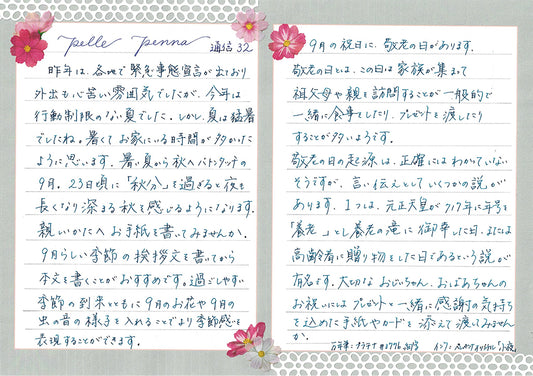 Pelle Penna 通信32
昨年は、各地で緊急事態宣言が出ており
外出も心苦しい雰囲気でしたが、今年は
行動制限のない夏でした。しかし、夏は猛暑
でしたね。暑くてお家にいる時間が多かった
ように思います。暑い夏から秋へバトンタッチの
9月。23日頃に「秋分」を過ぎると夜も
長くなり深まる秋を感じるようになります。
親しいかたへお手紙を書いてみませんか。
9月らしい季節の挨拶文を書いてから
本文を書くことがおすすめです。過ごしやすい
季節の到来とともに9月のお花や9月の
虫の音の様子を入れることでより季節感を
表現することができます。
9月の祝日に、敬老の日があります。
敬老の日とは、この日は家族が集まって
祖父母や親を訪問することが一般的で
一緒に食事をしたり、プレゼントを渡したり
することが多いようです。
敬老の日の起源は、正確にはわかっていない
そうですが、言い伝えとしていくつかの説が
あります。1つは、元正天皇が717年に年号を
「養老」とし養老の滝に御幸した日、または
高齢者に贈り物をした日であるという説が
有名です。大切なおじいちゃん、おばあちゃんの
お祝いにはプレゼントと一緒に感謝の気持ち
を込めた手紙やカードを添えて渡してみません
か。
万年筆：プラチナ #3776 インク：